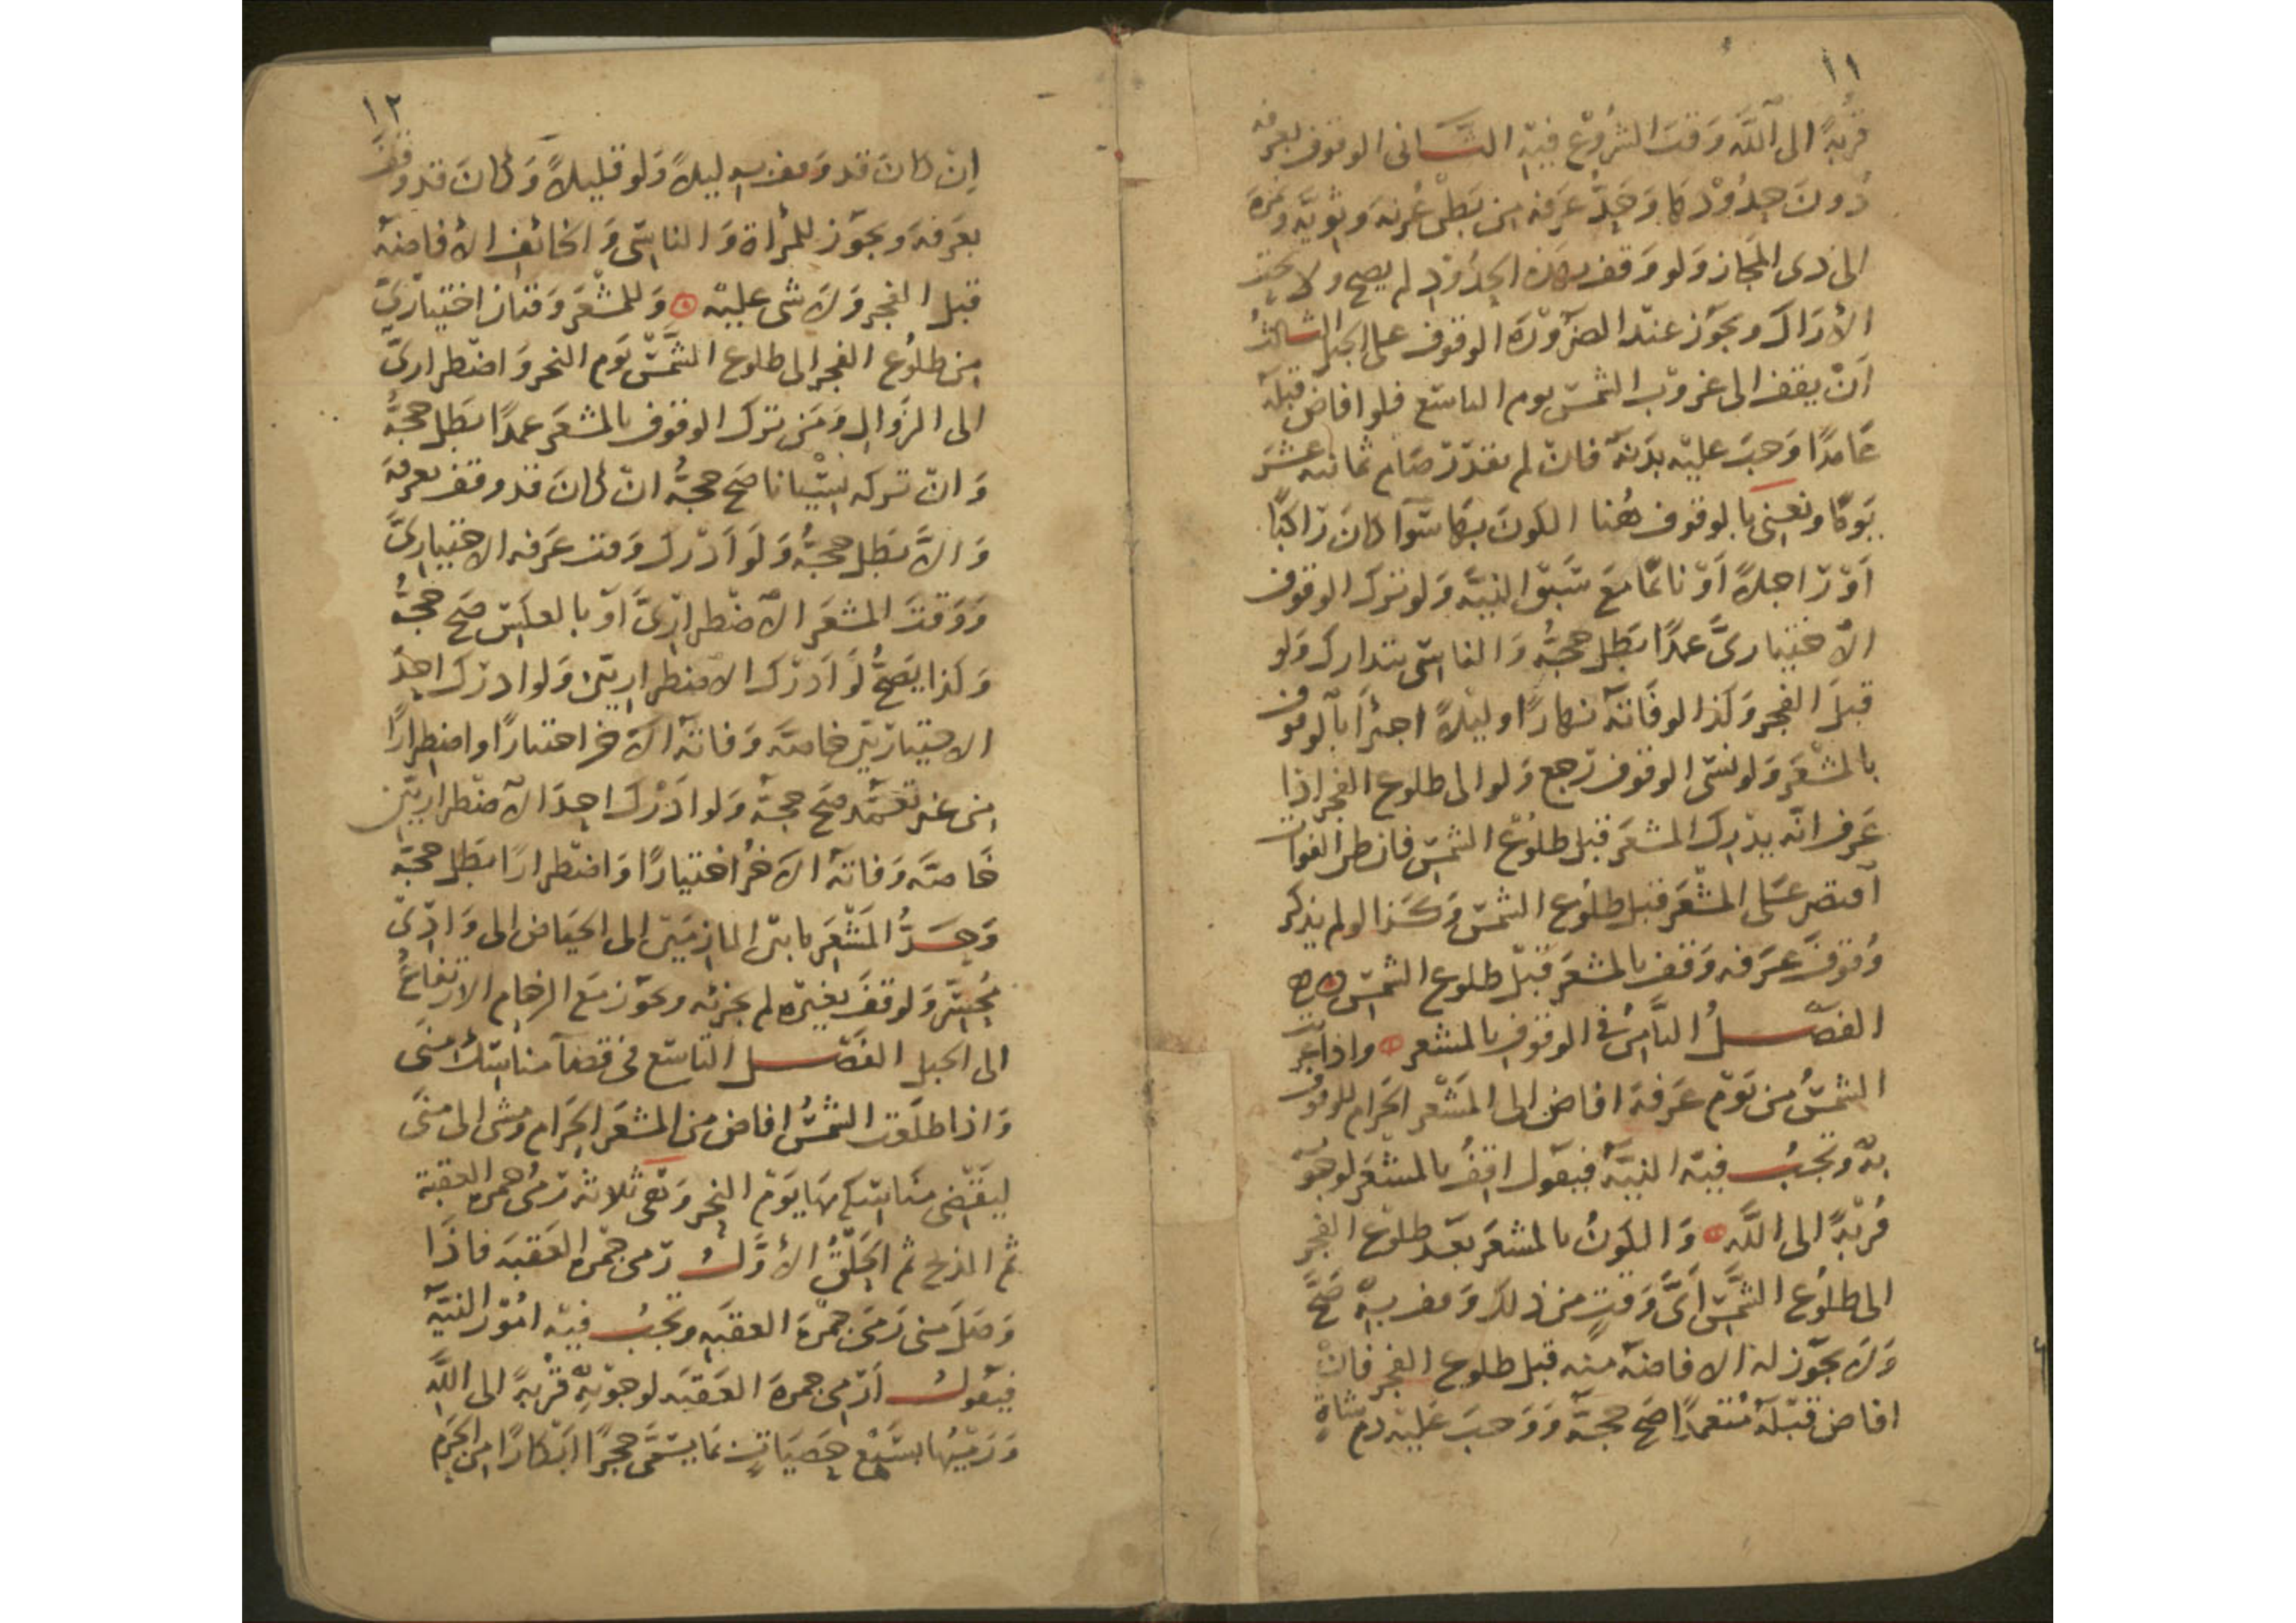 ١١
قُربةً الى اللّه وَقت الشُروْع فيْه الثَّانى الوقوف بعرفه
دُونَ حِدُوْدهَا وَحَدّ عَرَفه مِن بَطْن عُرنَة وَثويَّه وَنمرَة
الى ذى المجاز وَلو وَقف بهذه الحِدُوْد لم يصح ولا تحت
الأرَاك ويجَوز عنْد الضرَوْرَة الوقوف على الجبل الثالثُ
اَنْ يقف الى غرَوْب الشمسْ يوم التاسْع فلو افاض قبْله
عَامدًا وَجبَ عليْه بَدَنةٌ فانْ لم يقدَرْ صَام ثمانيه عشَرَ
يَومًا ونعنِى بالوقوف هُنا الكونَ بهَا سَوآ كانَ رَاكبًا
اَوْ رَاجلاً اَوْ نائمًا مَعَ سَبَق النيَّه وَلو ترَك الوقوف
الاختيارىَّ عمدًا بَطل حجّهُ وَالناسِى يتدارك وَلو
قبلَ الفجر وَكذا لو فَاتهُ نهارًا او ليْلاً اجتزأ بالوقوف
بالمشْعَر وَلو نسَى الوقوف رَجع وَلو الى طلوع الفجر اذا
عَرف انّه يدْرِك المشعَر قبْل طلوُع الشمسْ فان ظن الفوات
اَقتصَر عَلى المشْعَر قبل طلوُع الشمسْ وَكَذا لو لم يذكر
وُقوفَ عَرَفه وَقف بالمشعَر قَبْل طلوع الشمسْ
الفصْلُ الثَّامِنُ فى الوقوف بالمشعر واذا غربت
الشمسُ من يَوْم عَرَفةَ افاض الى المَشْعَر الحَرام للوقوف
بهْ وَتجبُ فيْه النيَّةُ فيقوْل اقِفُ بالمشعَر لوجوْبه
قُربْةً الى اللَّه وَالكَوْنُ بالمشعَر بَعد طلوْع الفجر
الى طلوُع الشَّمسْ اَىَّ وَقتٍ من ذلك وَقف بهْ صَحَّ
وَلاَ يجَوْز له الافاضَه منه قبل طلوع الفجر فانْ
افاض قبْلهُ مُتعمدًا صَح حجّهُ وَوَجبَ عَليْه دم شاة
١٢
اِنْ كانَ قد وَقف به ليلاً وَلو قليلاً وَكانَ قد وقفَ
بعَرَفة ويجَوْز للمرأة وَالناسِى وَالخائِف الأفاضهُ
قبْل الفجر وَلاَ شى عليْه وَللمشْعَر وَقتان اختيارْىّ
مِن طلوُع الفجر الى طلوع الشَّمسْ يَوم النحر وَاضْطرارىّ
الى الزَوال وَمَن ترَك الوقوف بالمشعَر عمدًا بَطل حجّهُ
وَانْ ترَكه نِسْيانا صَح حجّهُ انْ كانَ قد وقف بعرفَة
وَالاَّ بَطل حجّهُ وَلَو اَدْرَك وَقت عَرَفه الاختيارىَّ
وَوَقتَ المشعَر الاضْطرارِىَّ اَوْ بالعكسِ صَح حجّهُ
وَكذا يَصحُّ لَو اَدرَك الاضطرارِيّينْ وَلو ادرَك احِدَ
الاختيارَيّين خاصَّةً وَفاتهُ الاَخر اختيارًا واضطِرارًا
مِن غير تَعَمّد صَح حجّهُ وَلو ادَرَك احِدَ الاضْطراريّينِ
خَاصَّةً وَفاتهُ الاَخرُ اختيارًا وَاضْطرارًا بَطل حجّهُ
وَحِدُّ المَشْعَر مابيْن المازِمَيْن الى الحيَاض الى وَادِىْ
مُحِسّر وَلو وقفَ بغيْره لم يجزئه ويجوَز مَع الزحام الارْتفاعُ
الى الجبل الفَصْل التاسْع فى قضآ مناسِك منىَ
وَاذا طلَعَت الشمسُ افاض مَن المشعَر الحَرام وَمشى الى منىَ
ليَقضْى مَناسِكه بهَا يَوْم النحر وَهى ثلاثه رَمىُ جمرة العقبَة
ثم الذبح ثم الحَلْقُ الأوَّلُ رَمى جمْره العَقبَه فاذَا
وَصَل منى رَمىَ جمْرَةَ العقَبه وَيَجبُ فيْه امُوْرُ النيَّه
فيَقولُ اَرْمى جمرةَ العَقَبَه لوجوْبِهْ قرْبةً الى اللَّه
وَرَمْيُها بسَبْع حِصَيَاتٍ بمَا يسَمَّى حجرًا اَبْكارًا مِن الحَرَم